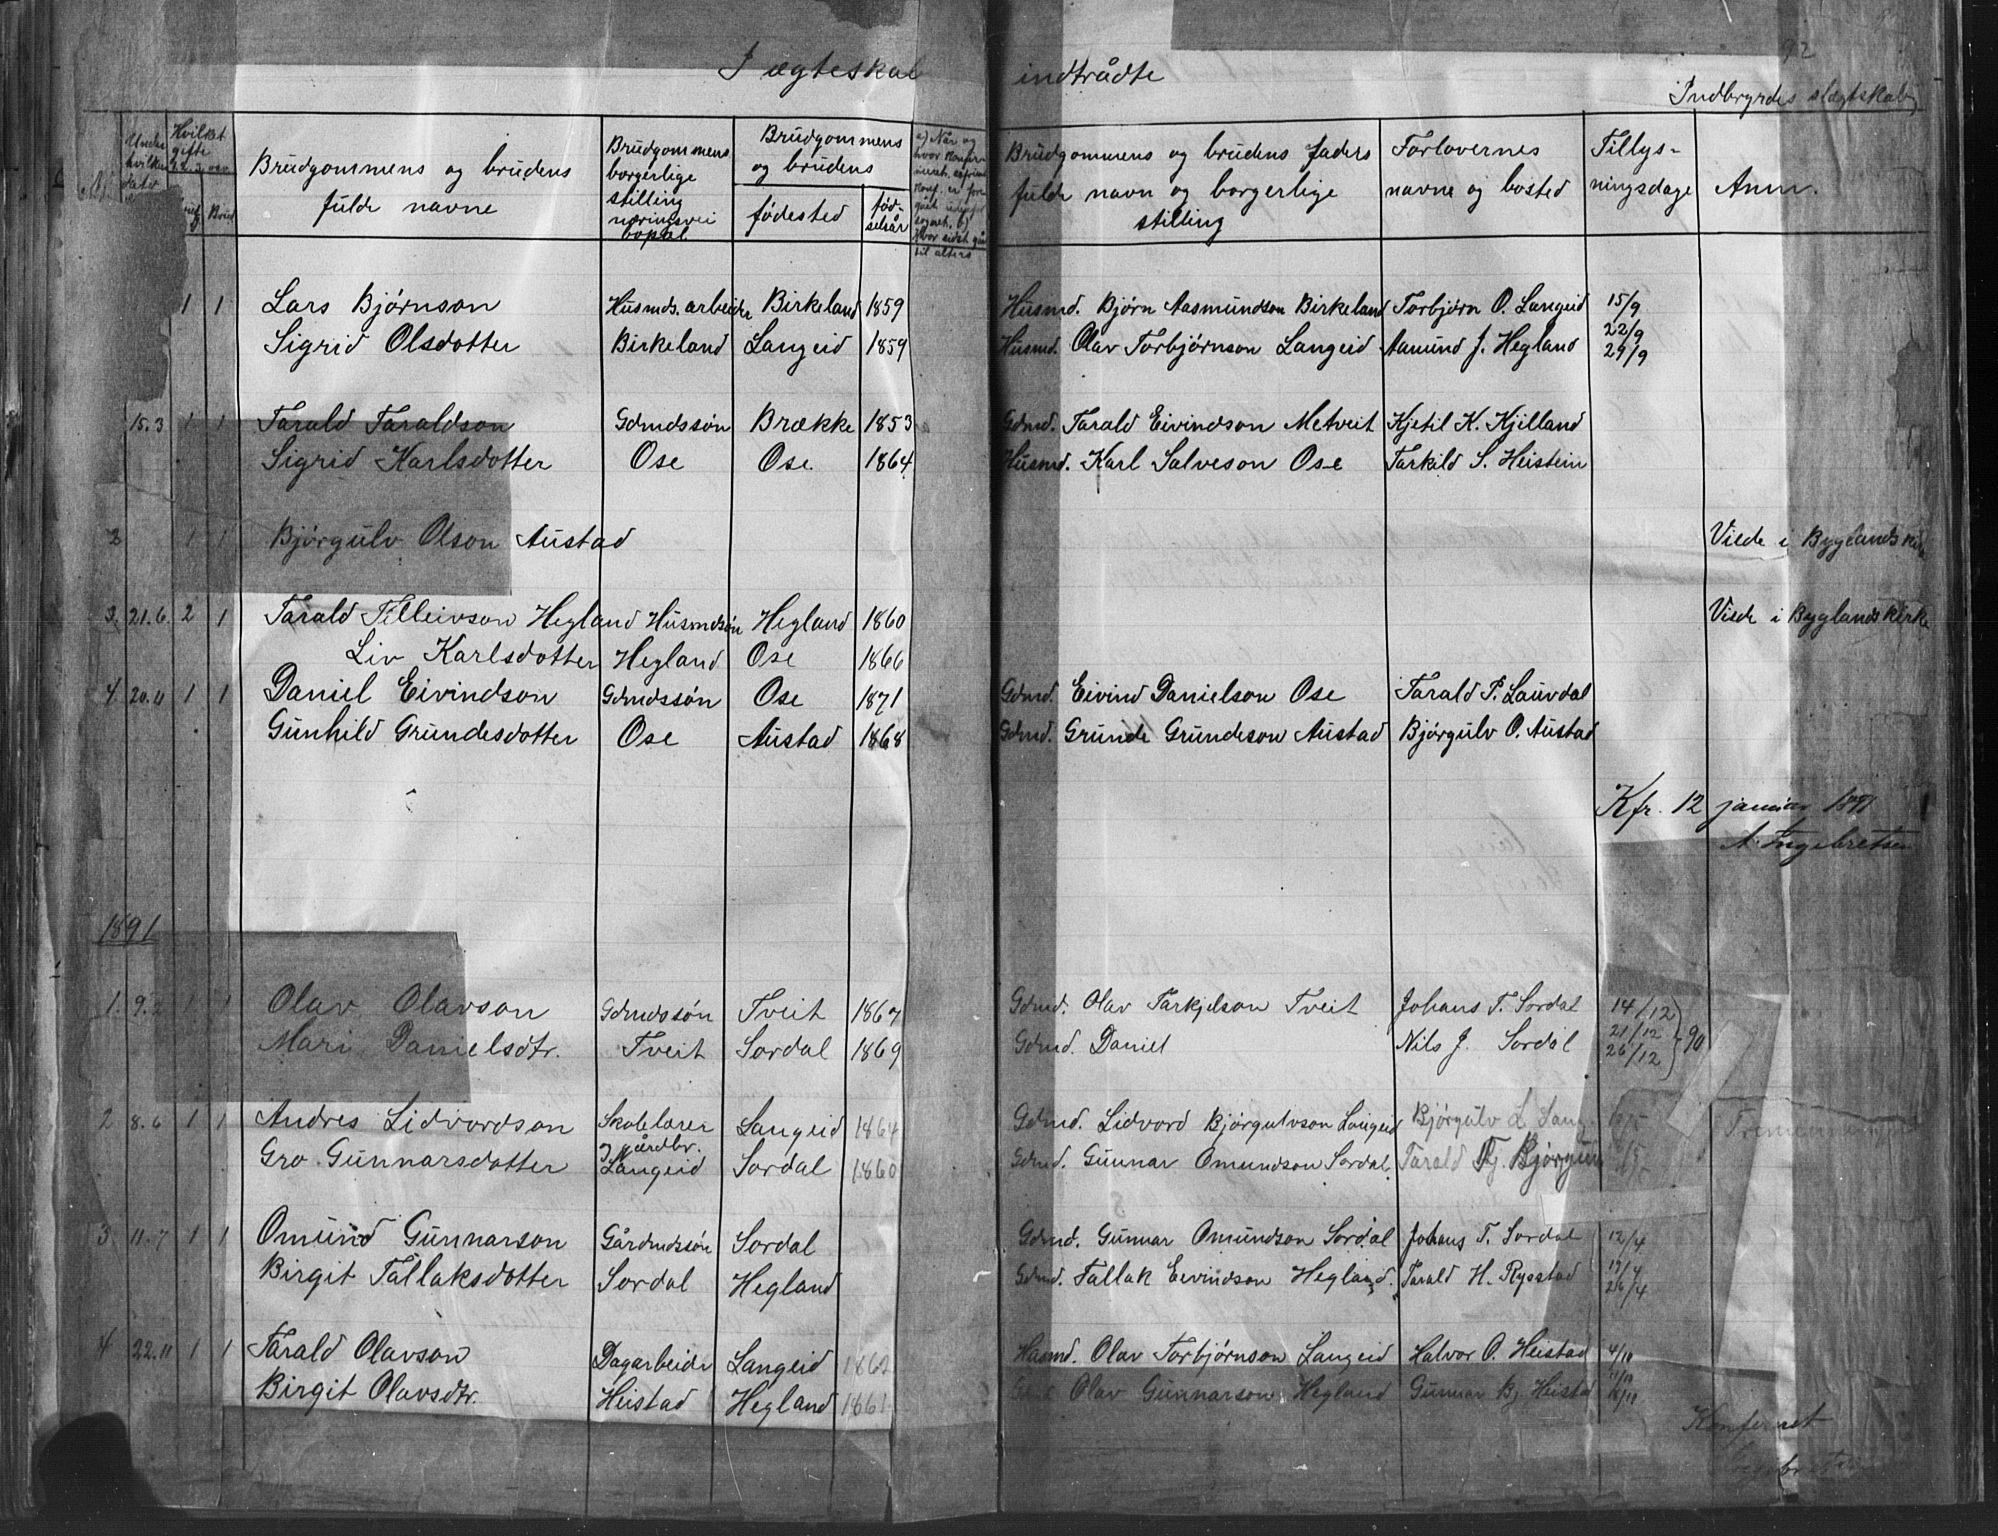 I ægteskab indtrådte
92
Indbyrdes slægtskab
Under hvilken dato
Hvilket gifte
Brud
Brudgommens og brudens fulde navne
Brudgommens borgerlige stilling næringsvei bopæl
Brudgommens og brudens
fødested
fødselsår
a) Når og hvor
til alters
Brudgommens og brudens faders fulde navn og borgerlige stilling
Forlovernes navne og bosted
Tillysningsdage
Anm.
1 1 Lars Bjørnson Husmds. arbeider Birkeland 1859 Husmd. Bjørn Aasmundson Birkeland Torbjørn O. Langeid 15/9
22/9
Sigrid Olsdotter Birkeland Langeid 1859 Husmd. Olav Torbjørnson Langeid Aamund J. Hegland 29/9
15.3 1 1 Tarald Taraldson Gdmdssøn Brække 1853 Gdmd. Tarald Eivindson Metveit Kjetil K. Kjilland
Sigrid Karlsdotter Ose Ose 1864 Husmd. Karl Salveson Ose Tarkild S. Heistein
2 1 1 Bjørgulv Olson Austad Viede i Byglands kirke
3. 21.6. 2 1 Tarald Tilleivson Hegland Husmdsøn Hegland 1860 Viede i Byglands kirke
Liv Karlsdotter Hegland Ose 1866
4. 20.11 1 1 Daniel Eivindson Gdmdssøn Ose 1871 Gdmd. Eivind Danielson Ose Tarald P. Lauvdal
Gunhild Grundesdotter Ose Austad 1868 Gdmd. Grunde Grundeson Austad Bjørgulv O. Austad
Kfr. 12 januar 1891
A. Ingebretsen
1891
1. 9.2 1 1 Olav Olavson Gdmdssøn Tveit 1867 Gdmd. Olav Tarkjelson Tveit Johans T. Sordal 14/12
21/12 } 90
Mari Danielsdtr. Tveit Sordal 1869 Gdmd. Daniel Nils J. Sordal 26/12
2 8.6 1 1 Andres Lidvordson Skolelærer og gårdbr. Langeid 1864 Gdmd. Lidvord Bjørgulvson Langeid Bjørgulv L. Lang
Gro Gunnarsdotter Langeid Sordal 1860 Gdmd. Gunnar Omundson Sordal Tarald Tj. Bjørgum
3 11.7 1 1 Omund Gunnarson Gårdmdssøn Sordal Gdmd. Gunnar Omundson Sordal Johans T. Sordal 12/4
19/4
Birgit Tallaksdotter Sordal Hegland Gdmd. Tallak Eivindson Hegland. Tarald H. Rysstad 26/4
4 22.11 1 1 Tarald Olavson Dagarbeider Langeid 1862 Husmd. Olav Torbjørnson Langeid Halvor O. Heistad 4/10
11/10
Birgit Olavsdtr. Heistad Hegland 1861 Olav Gunnarson Hegland Gunnar Bj. Heistad 18/10
Konfereret